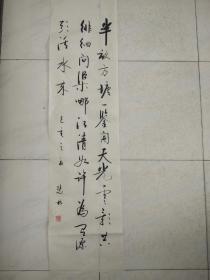 半畝方塘一鑒開天光雲影共
徘徊问渠哪得清如許為有源
頭活水来